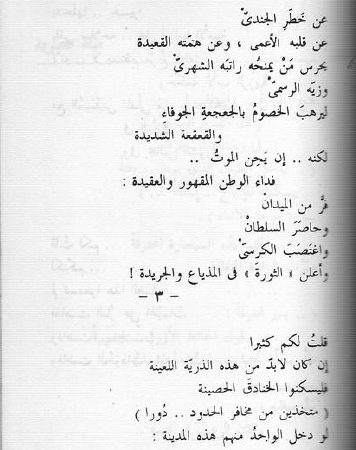 عن خَطَرِ الجنديّْ
عن قلبه الأعمى ، وعن همّته القعيدة
يحرس مَنْ يمنحُه راتبَه الشهريّْ
وزيّه الرسميّْ
ليرهبَ الخصومَ بالجعجعةِ الجوفاءِ
والقعقعة الشديدة
لكنه .. إن يَحِن الموتُ ..
فداء الوطن المقهور والعقيدة :
فرَّ من الميدانْ
وحاصَرَ السلطانْ
واغتصَبَ الكرسىّْ
وأعلن « الثورة » فى المذياع والجريدة !
– ٣ –
قلتُ لكم كثيرا
إن كان لابدّ من هذه الذريّة اللعينة
فليسكنوا الخنادقَ الحصينة
( متخذين من مخافر الحدود .. دُورا )
لو دخل الواحدُ منهم هذه المدينة :